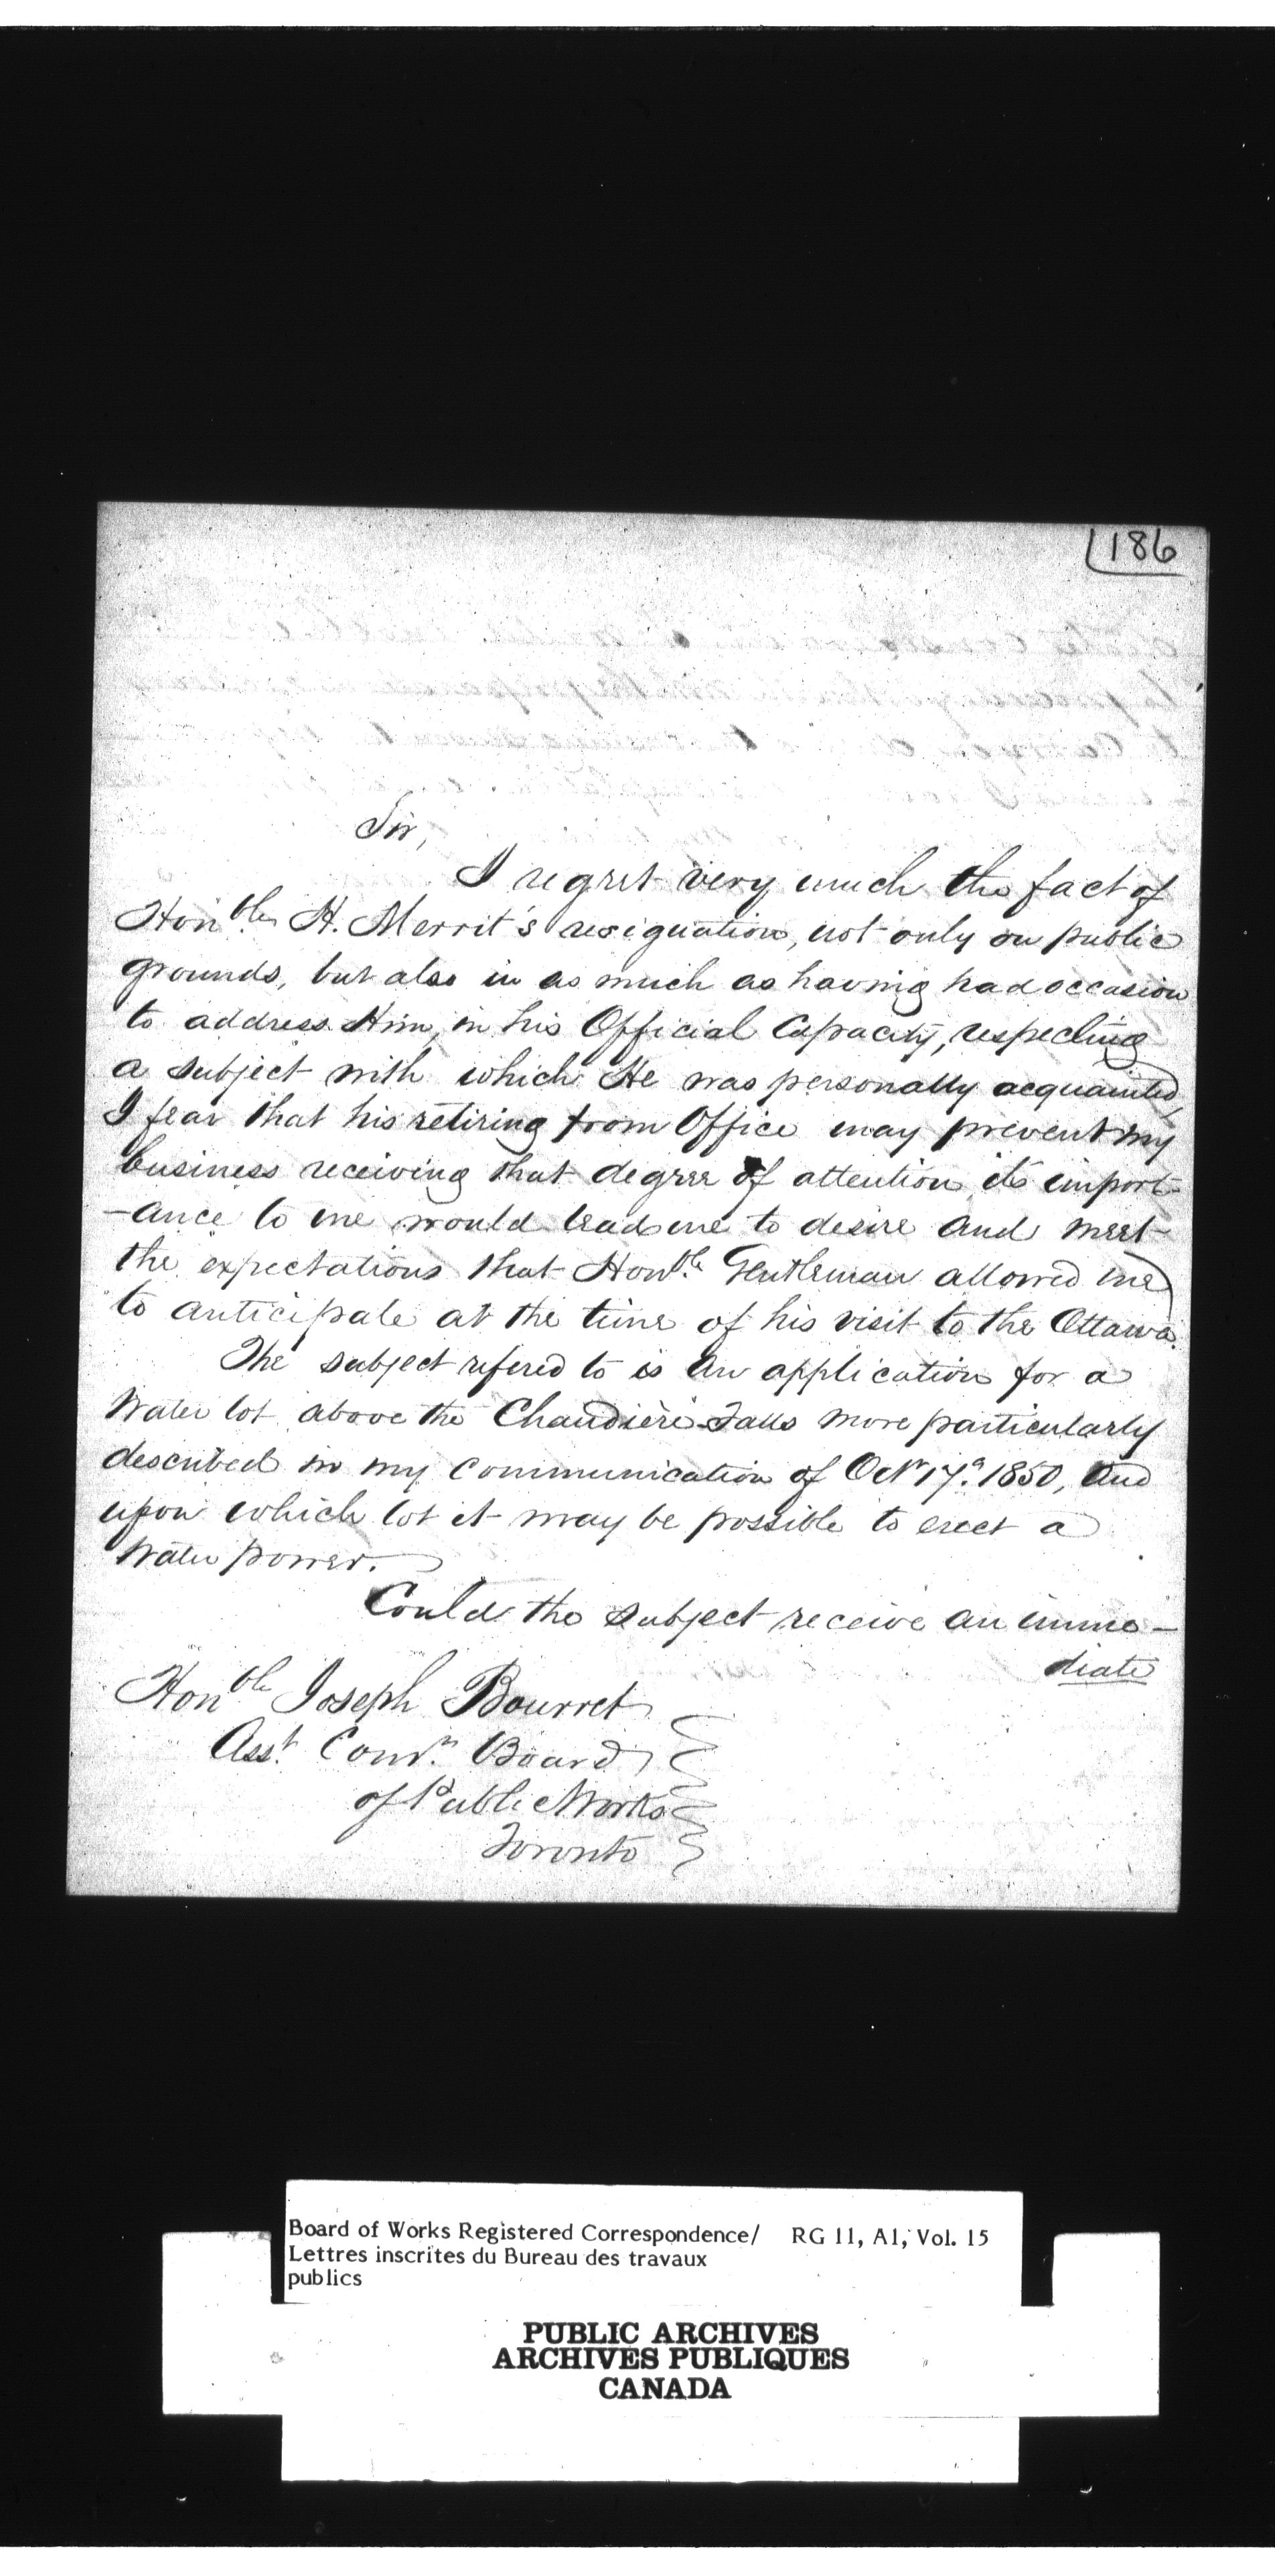 186
Sir,
I regret very much the fact of
Hon^ble H. Merrit's resignation, not only on public
grounds, but also in as much as having had occasion
to address Him, in his Official Capacity, respecting
a subject with which He was personally acquainted,
I fear that his retiring from Office may prevent my
business receiving that degree of attention its import-
-ance to me would lead me to desire and meet
the expectations that Hon^ble Gentleman allowed me
to anticipate at the time of his visit to the Ottawa.
The subject refered to is an application for a
Water lot above the Chaudière Falls more particularly
described in my communication of Oct 17. 1850, and
upon which lot it may be possible to erect a
Water power.
Could the subject receive an imme-
diate
Hon^ble Joseph Bourret
Asst. Comr. Board
of Public Works
Toronto
Board of Works Registered Correspondence/ RG 11, A1, Vol. 15
Lettres inscrites du Bureau des travaux
publics
PUBLIC ARCHIVES
ARCHIVES PUBLIQUES
CANADA